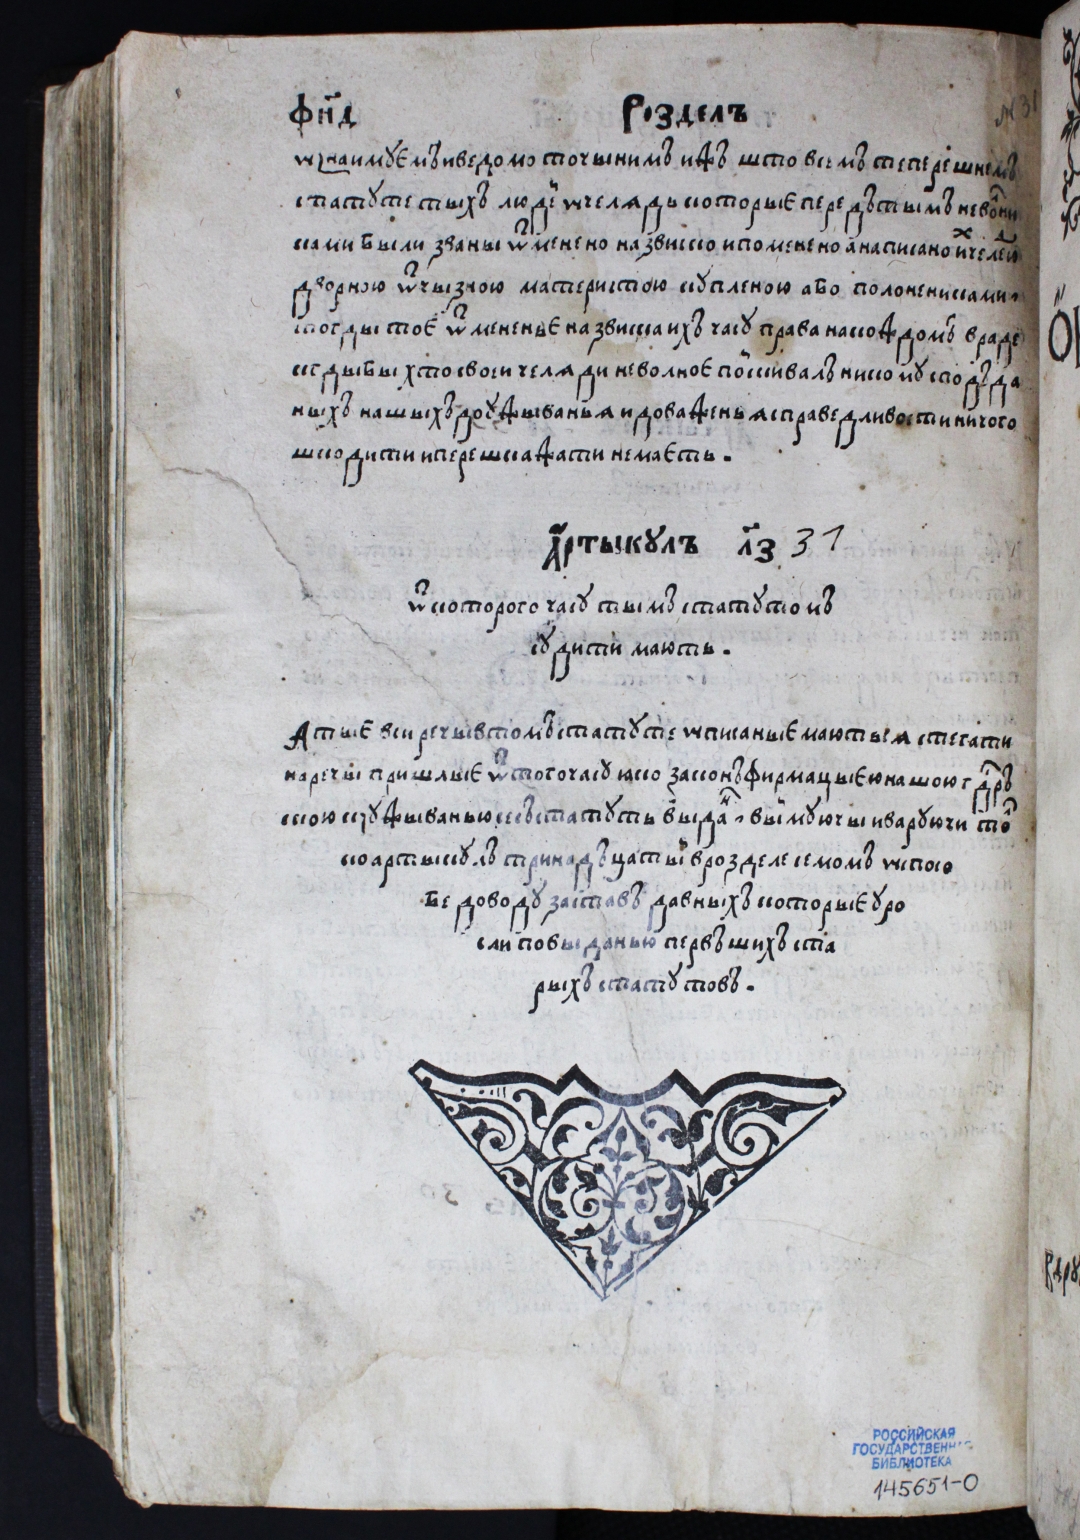 фн҃д Розделъ № 31
ѡзнаимуемъ иведомо точынимъ ижъ што всемъ теперешнемъ
статуте тыхъ людей ѡчелядь которые передътымъ невольни
ками были званы ѿменено назвиско ипоменено а написано ихъ челедю
дворною ѿчызною материстою купленою або полонениками,
тогды тое ѿмененье назвиска ихъ часу права на кождомъ вряде
кгдыбы хто своеи челяди неволное поискивалъ никому споддъда
ныхъ нашыхъ доужыванья идоваженья справедливости ничого
шкодити иперешкажати немаеть.
Артыкулъ л҃з 31
ѿ которого часу тымъ статутомъ
судити мають.
А тые вси речы втомъ статуте ѡписаные мають ся стегати
наречы пришлые ѿ того часу яко законъфирмацыею нашою гдр҃ъ
скою кужыванью сесь статутъ выданъ, выймуючы иваруючи то
ко артыкулъ тринадъцатый врозделе семомъ ѡспосо
бе доводу заставъ давных которые уро
сли повыданью первъшихъ ста
рыхъ статутовъ.
РОССИЙСКАЯ
ГОСУДАРСТВЕННАЯ
БИБЛИОТЕКА
145651-0